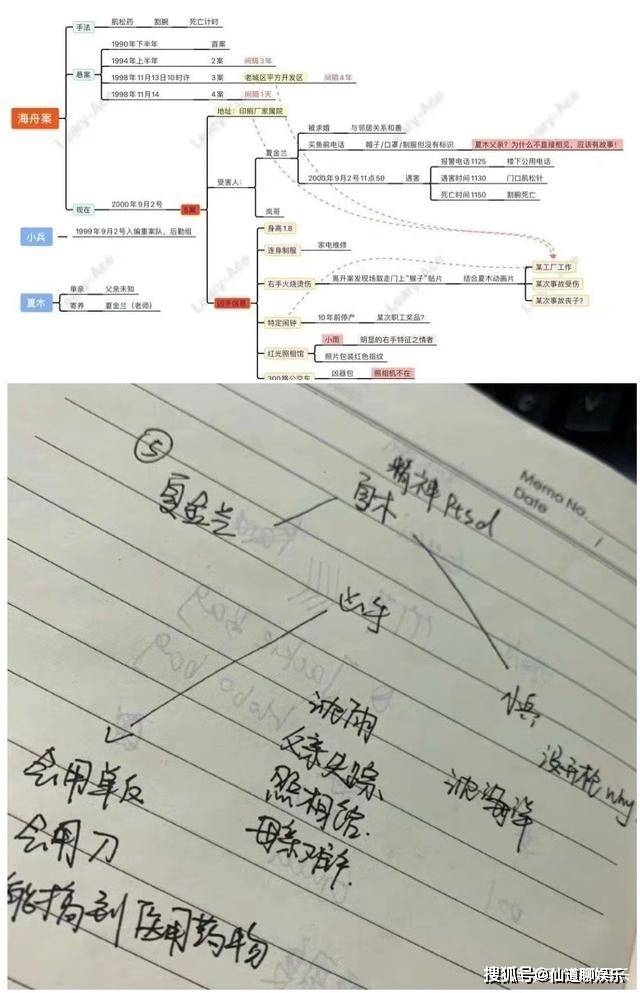 手法 肌松药 割腕 死亡计时
海舟案
悬案
1990年下半年 首案
1994年上半年 2案 间隔3年
1998年11月13日10时许 3案 老城区平方开发区 间隔4年
1998年11月14 4案 间隔1天
现在 2000年9月2号 5案
地址：印刷厂家属院
受害人：
夏金兰
被求婚 与邻居关系和善
买鱼前电话 帽子/口罩/制服但没有标识 夏木父亲？为什么不直接相见，应该有故事！
2000年9月2号11点50 遇害
报警电话1125 楼下公用电话
遇害时间1130 门口肌松针
死亡时间1150 割腕死亡
岚哥
凶手信息
身高1.8
连身制服 家电维修
右手火烧烫伤 离开案发现场取走门上“猴子”贴片 结合夏木动画片
某工厂工作
某次事故受伤
某次事故丧子？
特定闹钟 10年前停产 某次职工奖品？
红光照相馆
小雨 明显的右手特征之情者
照片包装红色指纹
300路公交车 凶器包 照相机不在
小兵 1999年9月2号入编重案队，后勤组
夏木
单亲 父亲未知
寄养 夏金兰（老师）
Leary-Ace
Memo No.
Date
1
⑤
夏金兰
精神Ptsd
夏木
凶手
小兵
没开枪why
会用单反
会用刀
能搞到医用药物
沈雨
父亲失踪
照相馆
母亲难产
沈海洋
搜狐号@仙道聊娱乐